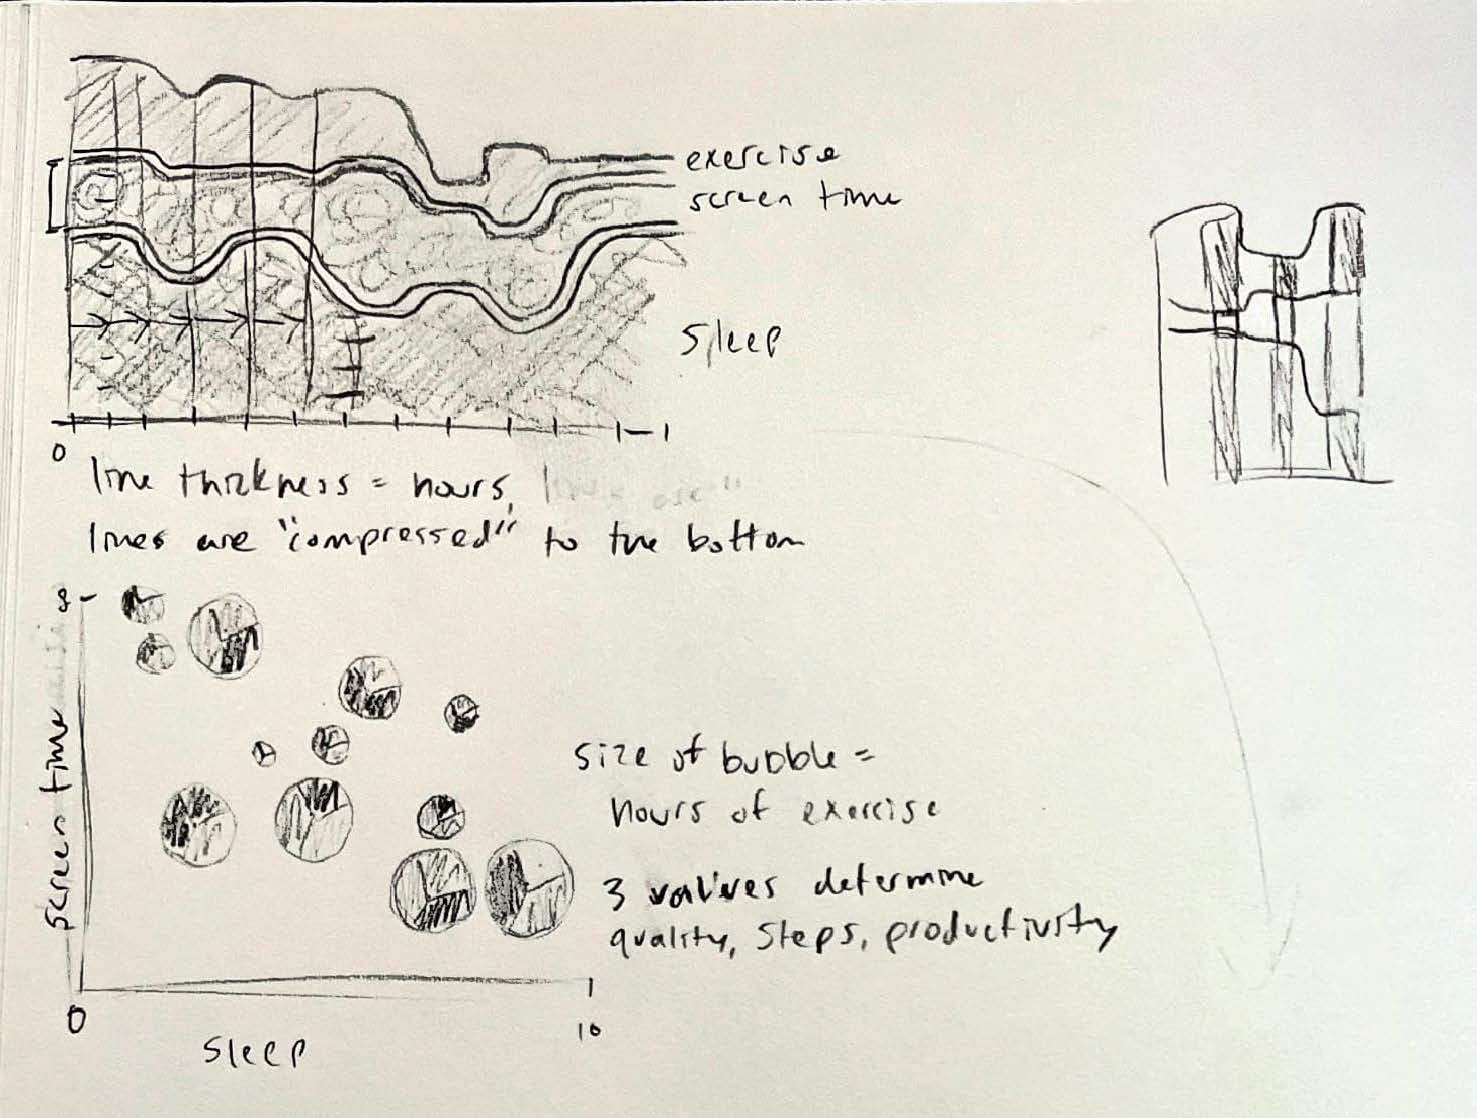 exercise
screen time
sleep
0
line thickness = hours,
lines are "compressed" to the bottom
8
screen time
size of bubble =
hours of exercise
3 values determine
quality, steps, productivity
0
10
sleep